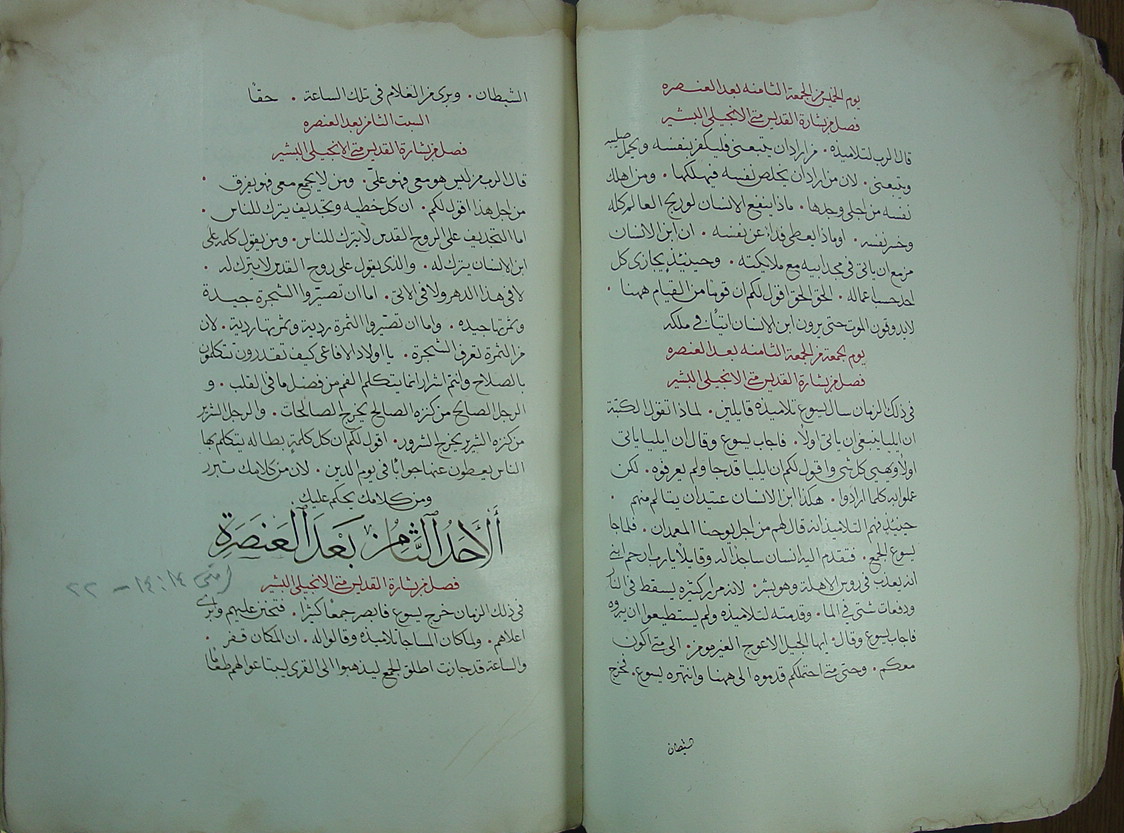 يوم الخميس من الجمعة الثامنه بعد العنصره
فصل من بشارة القديس متى الانجيلي البشير
قال الرب لتلاميذه . من اراد ان يتبعني فليكفر بنفسه ويحمل صليبه
ويتبعني . لان من اراد ان يخلص نفسه فيهلكها . ومن اهلك
نفسه من اجلي وجدها . ماذا ينفع الانسان لو ربح العالم كله
وخسر نفسه . او ماذا يعطي فداءً عن نفسه . ان ابن الانسان
مزمع ان ياتي في مجد ابيه مع ملايكته . وحينيذٍ يجازي كل
احد حسب اعماله . الحق الحق اقول لكم ان قومًا من القيام ههنا .
لا يذوقون الموت حتى يرون ابن الانسان اتيًا في ملكه
يوم الجمعة من الجمعة الثامنه بعد العنصره
فصل من بشارة القديس متى الانجيلي البشير
في ذلك الزمان سال يسوع تلاميذه قايلين . لماذا تقول الكتبة
ان ايليا ينبغي ان ياتي اولًا . فاجاب يسوع وقال ان ايليا ياتي
اولًا ويهيي كل شي واقول لكم ان ايليا قد جا ولم يعرفوه . لكن
عملوا به كلما ارادوا . هكذا ابن الانسان عتيد ان يتالم منهم .
حينيذٍ فهم التلاميذ انه قال لهم من اجل يوحنا المعمدان . فلما جا
يسوع للجمع . فتقدم اليه انسان ساجدًا له وقايلًا يا رب ارحم ابني
انه يعذب في رووس الاهلة وهو بشر . لانه مرار كثيرة يسقط في النار
ودفعات شتى في الما . وقدمته لتلاميذه ولم يستطيعوا ان يبروه
فاجاب يسوع وقال . ايها الجيل الاعوج الغير مومن . الى متى اكون
معكم . وحتى متى احتملكم قدموه الى ههنا وانتهره يسوع . فخرج
شيطان
الشيطان . وبرى من الغلام في تلك الساعة . حقًا
السبت الثامن بعد العنصره
فصل من بشارة القديس متى الانجيلي البشير
قال الرب من ليس هو معي فهو عليّ . ومن لا يجمع معي فهو يفرق .
من اجل هذا اقول لكم . ان كل خطيه وتجديف يترك للناس .
اما التجديف على الروح القدس لا يترك للناس . ومن يقول كلمه على
ابن الانسان يترك له . والذي يقول على روح القدس لا يترك له .
لا في هذا الدهر ولا في الاتي . اما ان تصيّروا الشجرة جيدة
وثمرتها جيده . واما ان تصيّروا الثمرة ردية وثمرتها ردية . لان
من الثمرة تعرف الشجرة . يا اولاد الافاعي كيف تقدرون تتكلمون
بالصلاح وانتم اشرار انما يتكلم الفم من فضل ما في القلب . و
الرجل الصالح من كنزه الصالح يخرج الصالحات . والرجل الشرير
من كنزه الشرير يخرج الشرور . اقول لكم ان كل كلمةٍ بطاله يتكلم بها
الناس يعطون عنها جوابًا في يوم الدين . لان من كلامك تبرر
ومن كلامك يحكم عليك .
أَلأَحَدُ الثَّامِنُ بَعْدَ العَنصَرَةِ
فصل من بشارة القديس متى الانجيلي البشير
(متى ١٤:١٤ – ٢٢
في ذلك الزمان خرج يسوع فابصر جمعًا كثيرًا . فتحنن عليهم وابرى
اعلاهم . ولما كان المسا جا تلاميذه وقالوا له . ان المكان قفر .
والساعة قد جازت اطلق الجمع ليذهبوا الى القرى ليبتاعوا لهم طعامًا